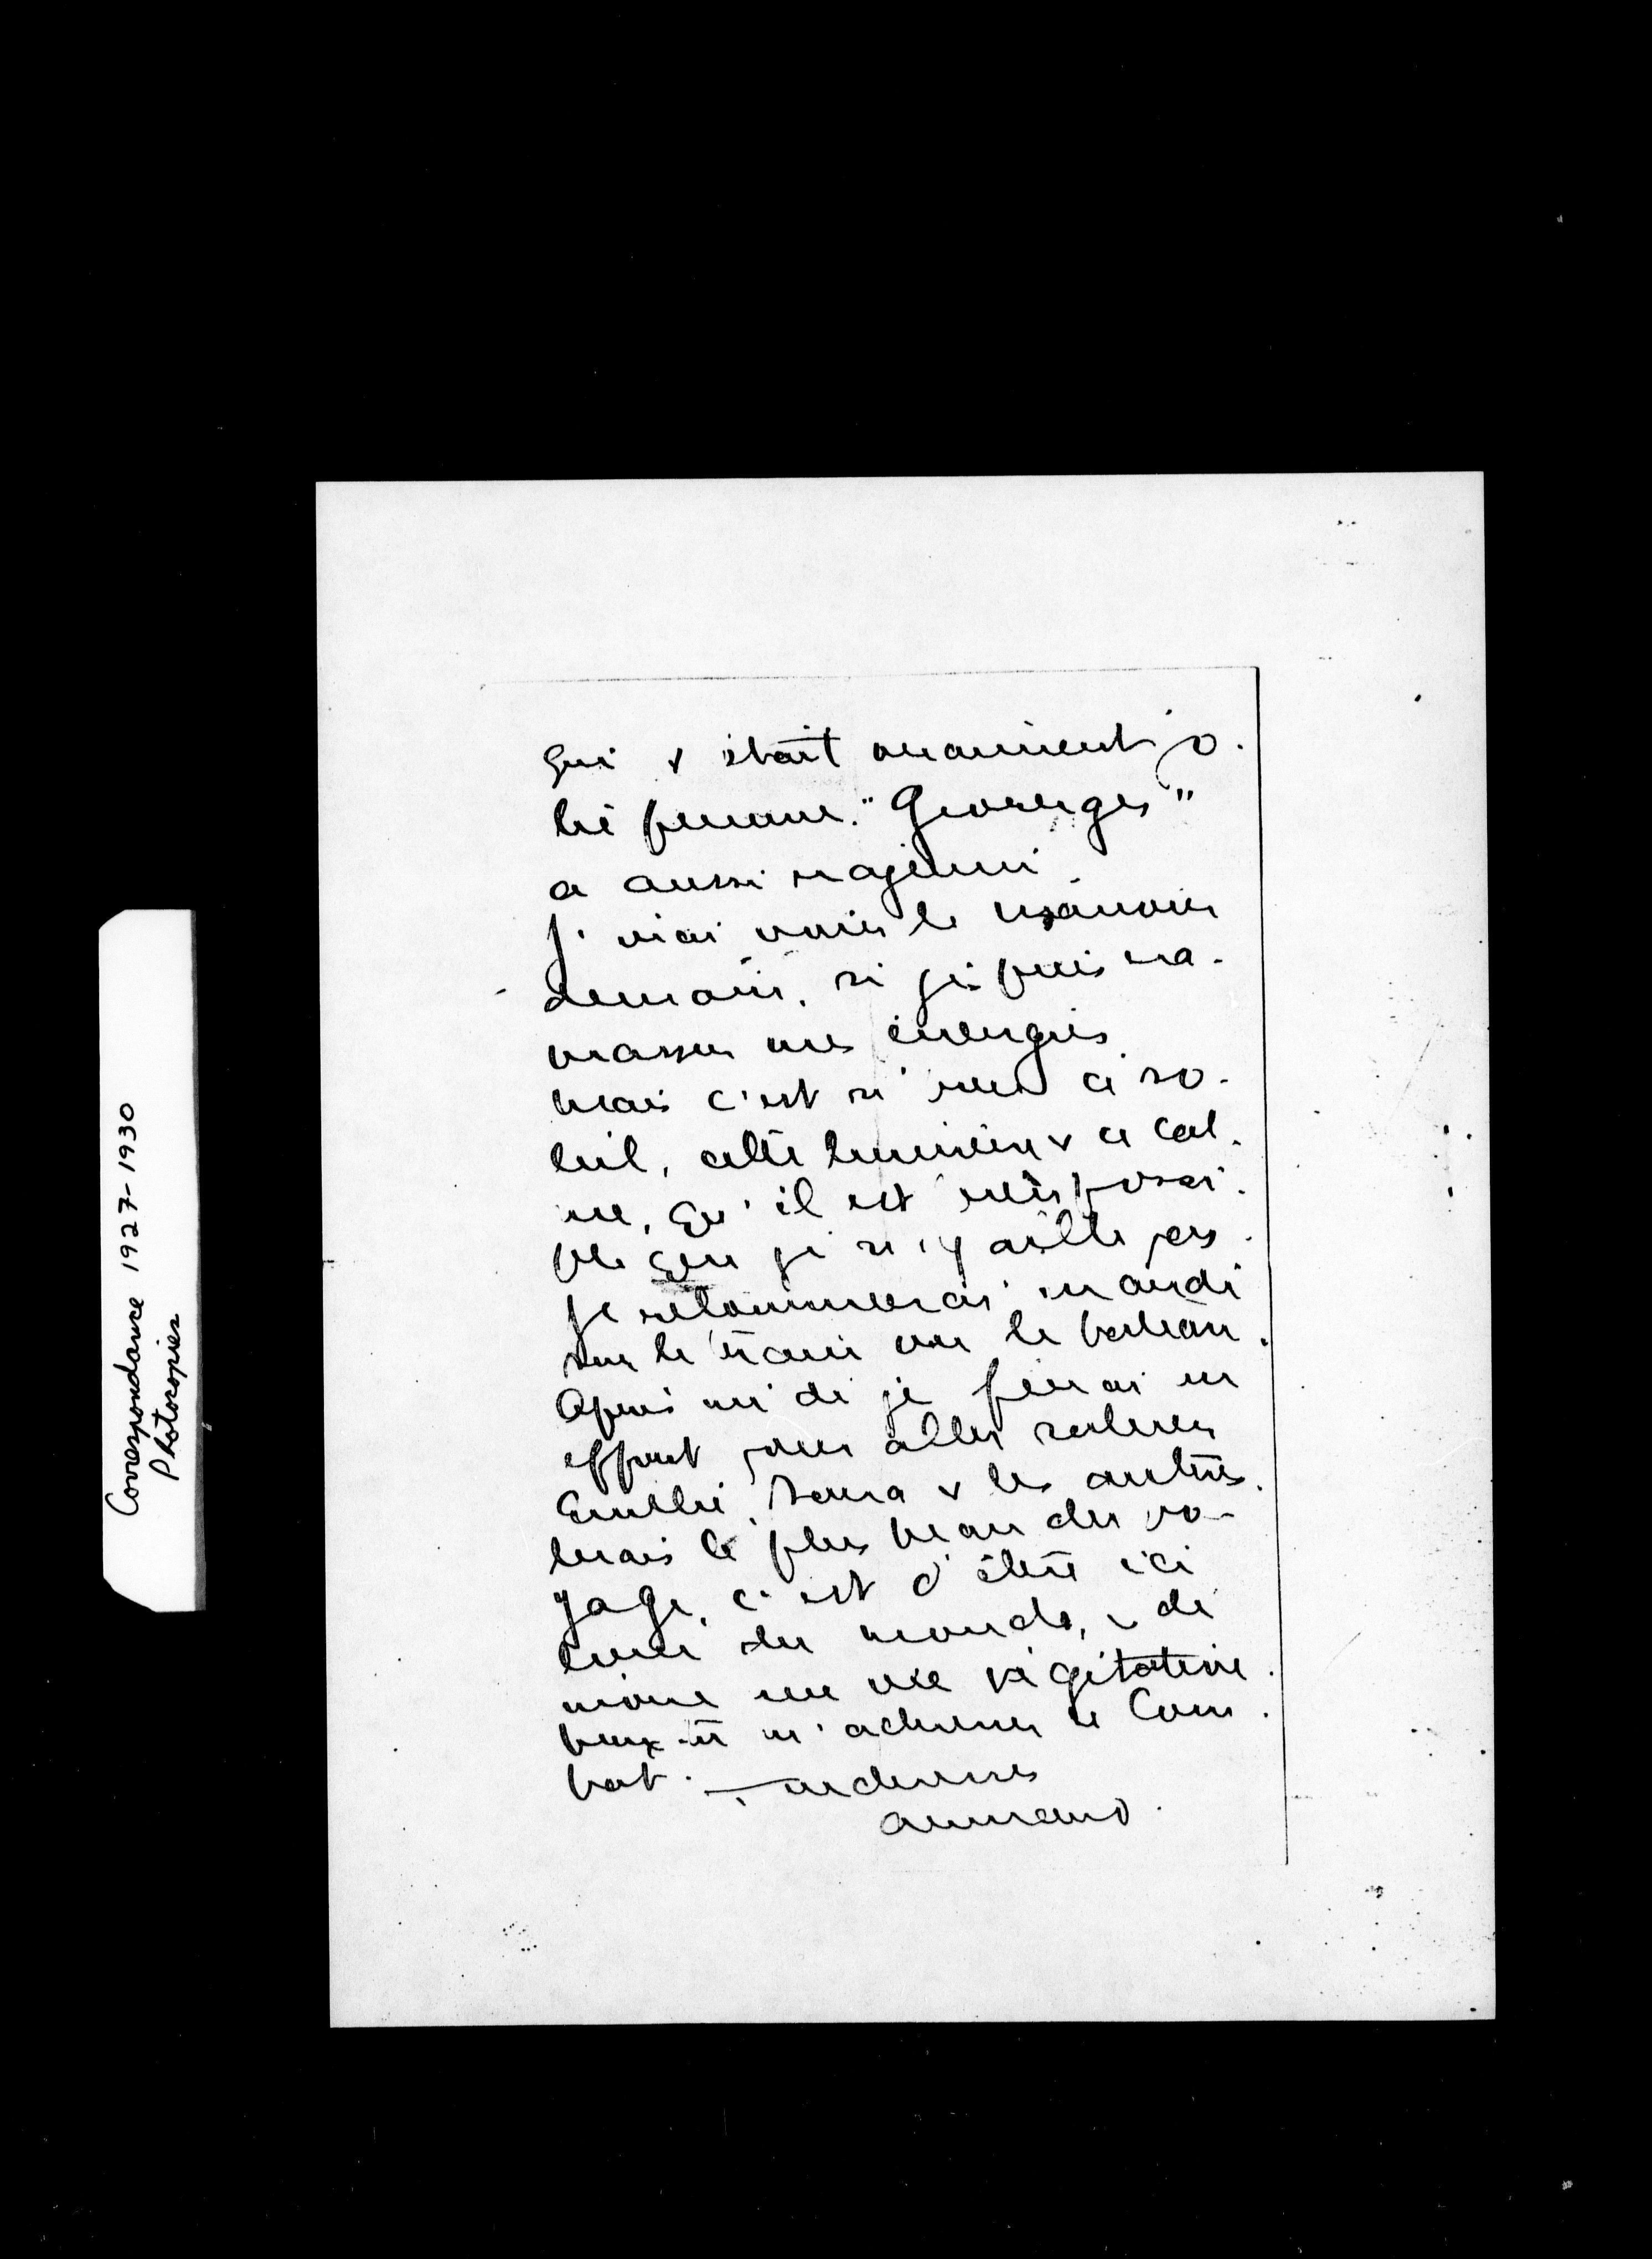 Correspondance 1927-1930
Photocopies
qui & était vraiment jo-
lie femme. "Georges"
a aussi rajeuni.
J'irai voir le manoir
demain, si je puis ra-
masser mes énergies
mais c'est si ce so-
leil, cette lumière & ce cal-
me, qu'il est possi-
ble que je n'y aille pas.
Je retournerai mardi
sur le train ou le bateau.
Après midi je ferai un
effort pour aller saluer
Emélie, & les autres.
mais le plus beau du vo-
yage, c'est d'être ici
loin du monde, & de
vivre une vie végétative.
Peux-tu m'acheter le Com-
bat. — tendresses
Armand.